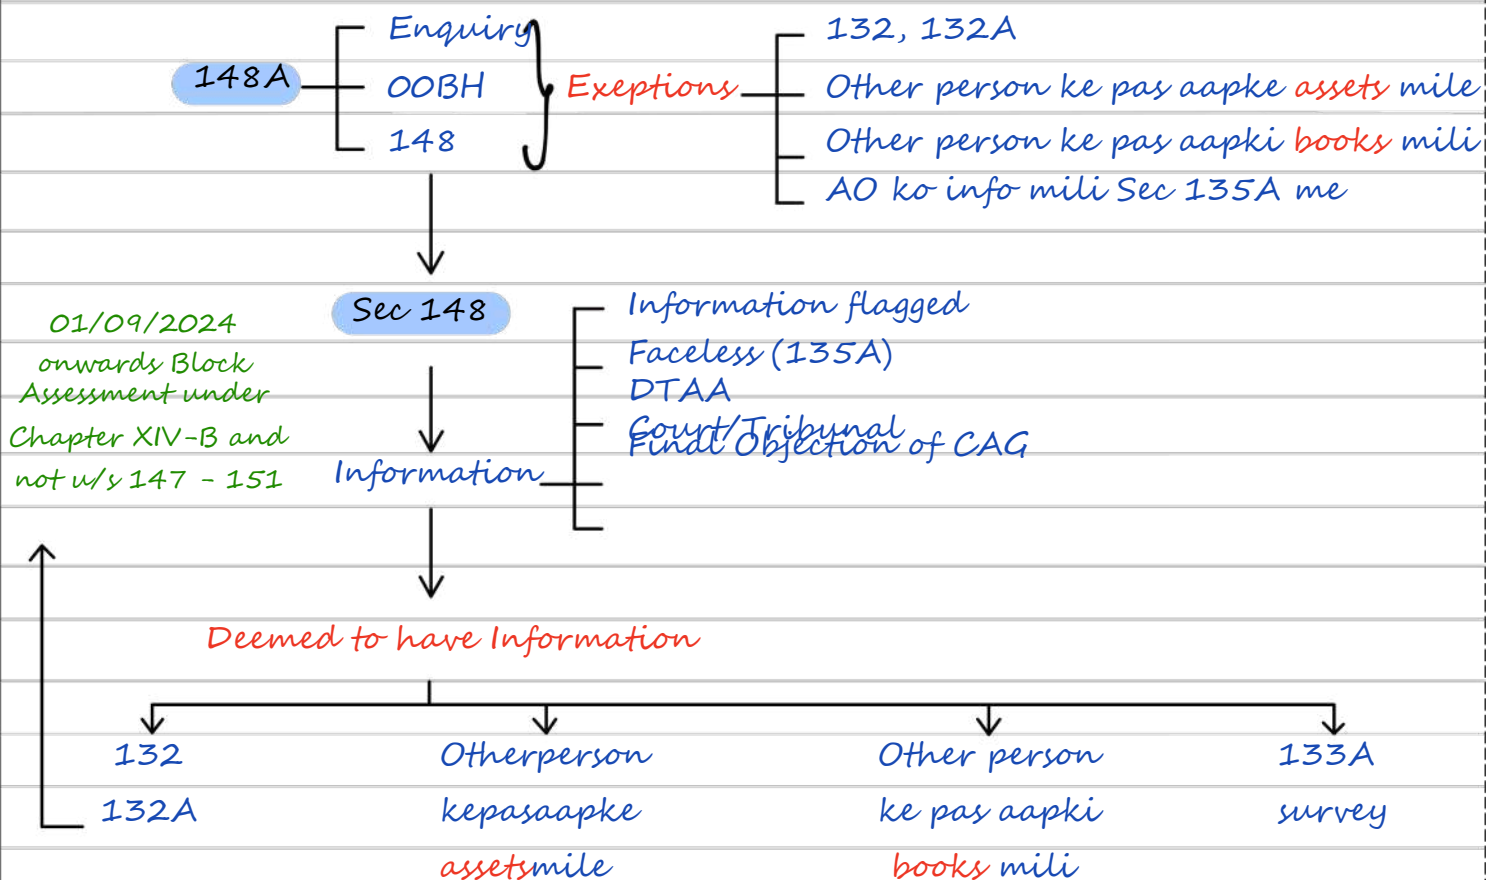 148A
Enquiry
OOBH
148
Exeptions
132, 132A
Other person ke pas aapke assets mile
Other person ke pas aapki books mili
AO ko info mili Sec 135A me
Sec 148
01/09/2024
onwards Block
Assessment under
Chapter XIV-B and
not u/s 147 - 151
Information
Information flagged
Faceless (135A)
DTAA
Court/Tribunal
Final Objection of CAG
Deemed to have Information
132
132A
Otherperson
kepasaapke
assetsmile
Other person
ke pas aapki
books mili
133A
survey